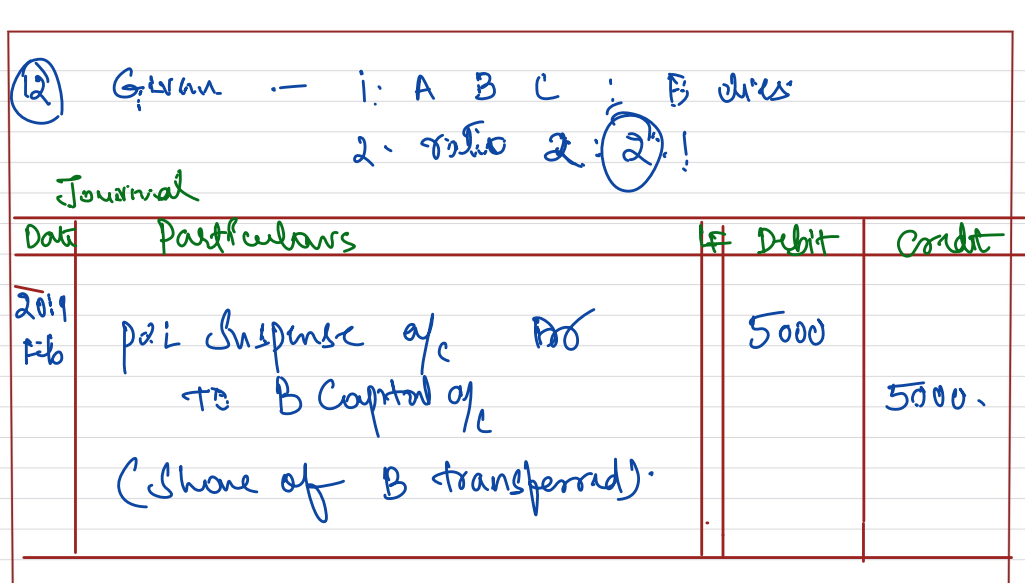 12 Given :- 1. A B C : B dies
2. ratio 2 : 2 : 1
Journal
Date Particulars LF Debit Credit
2019
Feb
P&L Suspense a/c Dr 5000
To B Capital a/c 5000.
(Share of B transferred).